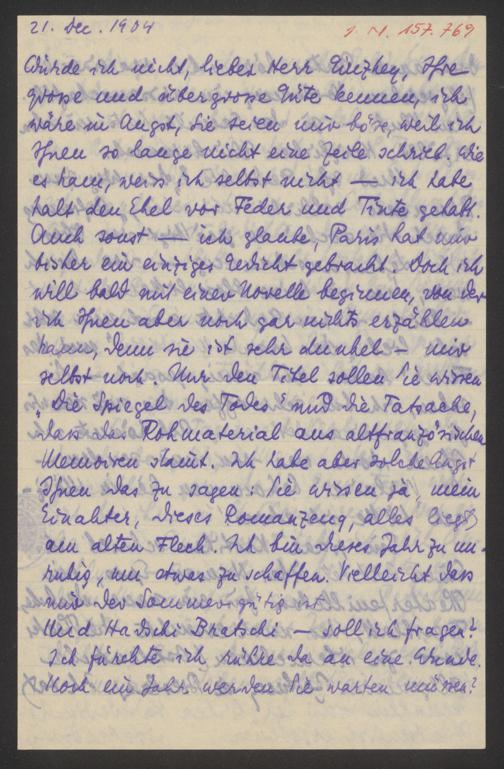 21. Dec. 1904
I. N. 157.769
Würde ich nicht, lieber Herr Ginzkey, Ihre
grosse und übergrosse Güte kennen, ich
wäre in Angst, Sie seien mir böse, weil ich
Ihnen so lange nicht eine Zeile schrieb. Wie
es kam, weiss ich selbst nicht — ich habe
halt den Ekel vor Feder und Tinte gehabt.
Auch sonst — ich glaube, Paris hat mir
bisher ein einziges Gedicht gebracht. Doch ich
will bald mit einer Novelle beginnen, von der
ich Ihnen aber noch gar nichts erzählen
kann, denn sie ist sehr dunkel — mir
selbst noch. Nur den Titel sollen Sie wissen
„Die Spiegel des Todes" und die Tatsache,
dass das Rohmaterial aus altfranzösischen
Memoiren stamt. Ich habe aber solche Angst
Ihnen das zu sagen. Sie wissen ja, mein
Einakter, dieses Romanzeug, alles liegt
am alten Fleck. Ich bin dieses Jahr zu un-
ruhig, um etwas zu schaffen. Vielleicht dass
mir der Sommer gütig ist.
Und Hadschi Bratschi — soll ich fragen?
Ich fürchte ich rühre da an eine Wunde.
Noch ein Jahr werden Sie warten müssen?